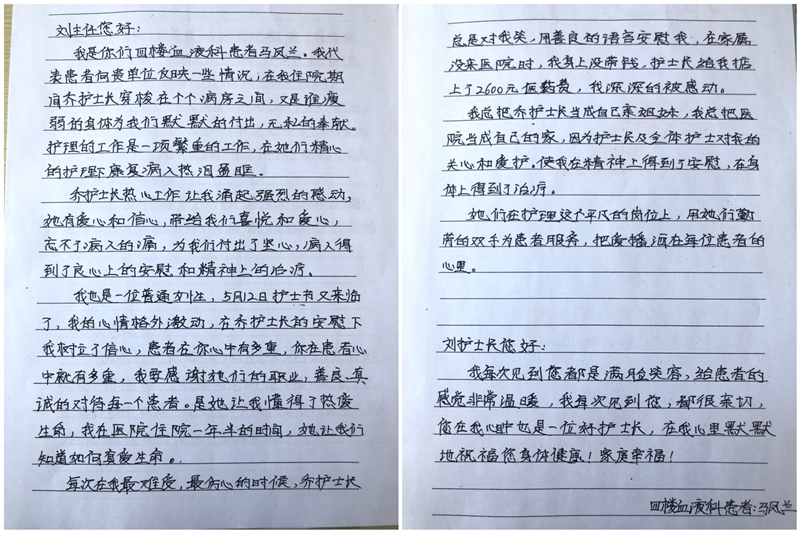 刘主任您好：
我是你们四楼血液科患者马凤兰。我代
表患者向贵单位反映一些情况；在我住院期
间乔护士长穿梭在个个病房之间，又是谁瘦
弱的身体为我们默默的付出，无私的奉献。
护理的工作是一项繁重的工作，在她们精心
的护理下康复病人热泪盈眶。
乔护士长热心工作让我涌起强烈的感动，
她有爱心和信心，带给我们喜悦和爱心，
忘不了病人的痛，为我们付出了坚心；病人得
到了良心上的安慰和精神上的治疗。
我也是一位普通女性，5月12日护士节又来临
了，我的心情格外激动，在乔护士长的安慰下
我树立了信心，患者在你心中有多重，你在患者心
中就有多重，我要感谢她们的职业，善良、真
诚的对待每一个患者。是她让我懂得了热爱
生命，我在医院住院一年半的时间，她让我们
知道如何真爱生命。
每次在我最难受，最伤心的时候，乔护士长
总是对我笑，用善良的语言安慰我，在家属
没来医院时，我身上没带钱，护士长给我垫
上了2600元医药费，我深深的被感动。
我总把乔护士长当成自己亲姐妹，我总把医
院当成自己的家，因为护士长及全体护士对我的
关心和爱护。使我在精神上得到了安慰，在身
体上得到了治疗。
她们在护理这个平凡的岗位上，用她们勤
劳的双手为患者服务，把爱播洒在每位患者的
心里。
刘护士长您好：
我每次见到您都是满脸笑容，给患者的
感觉非常温暖，我每次见到您，都很亲切，
您在我心中也是一位好护士长，在我心里默默
地祝福您身体健康！家庭幸福！
四楼血液科患者：马凤兰